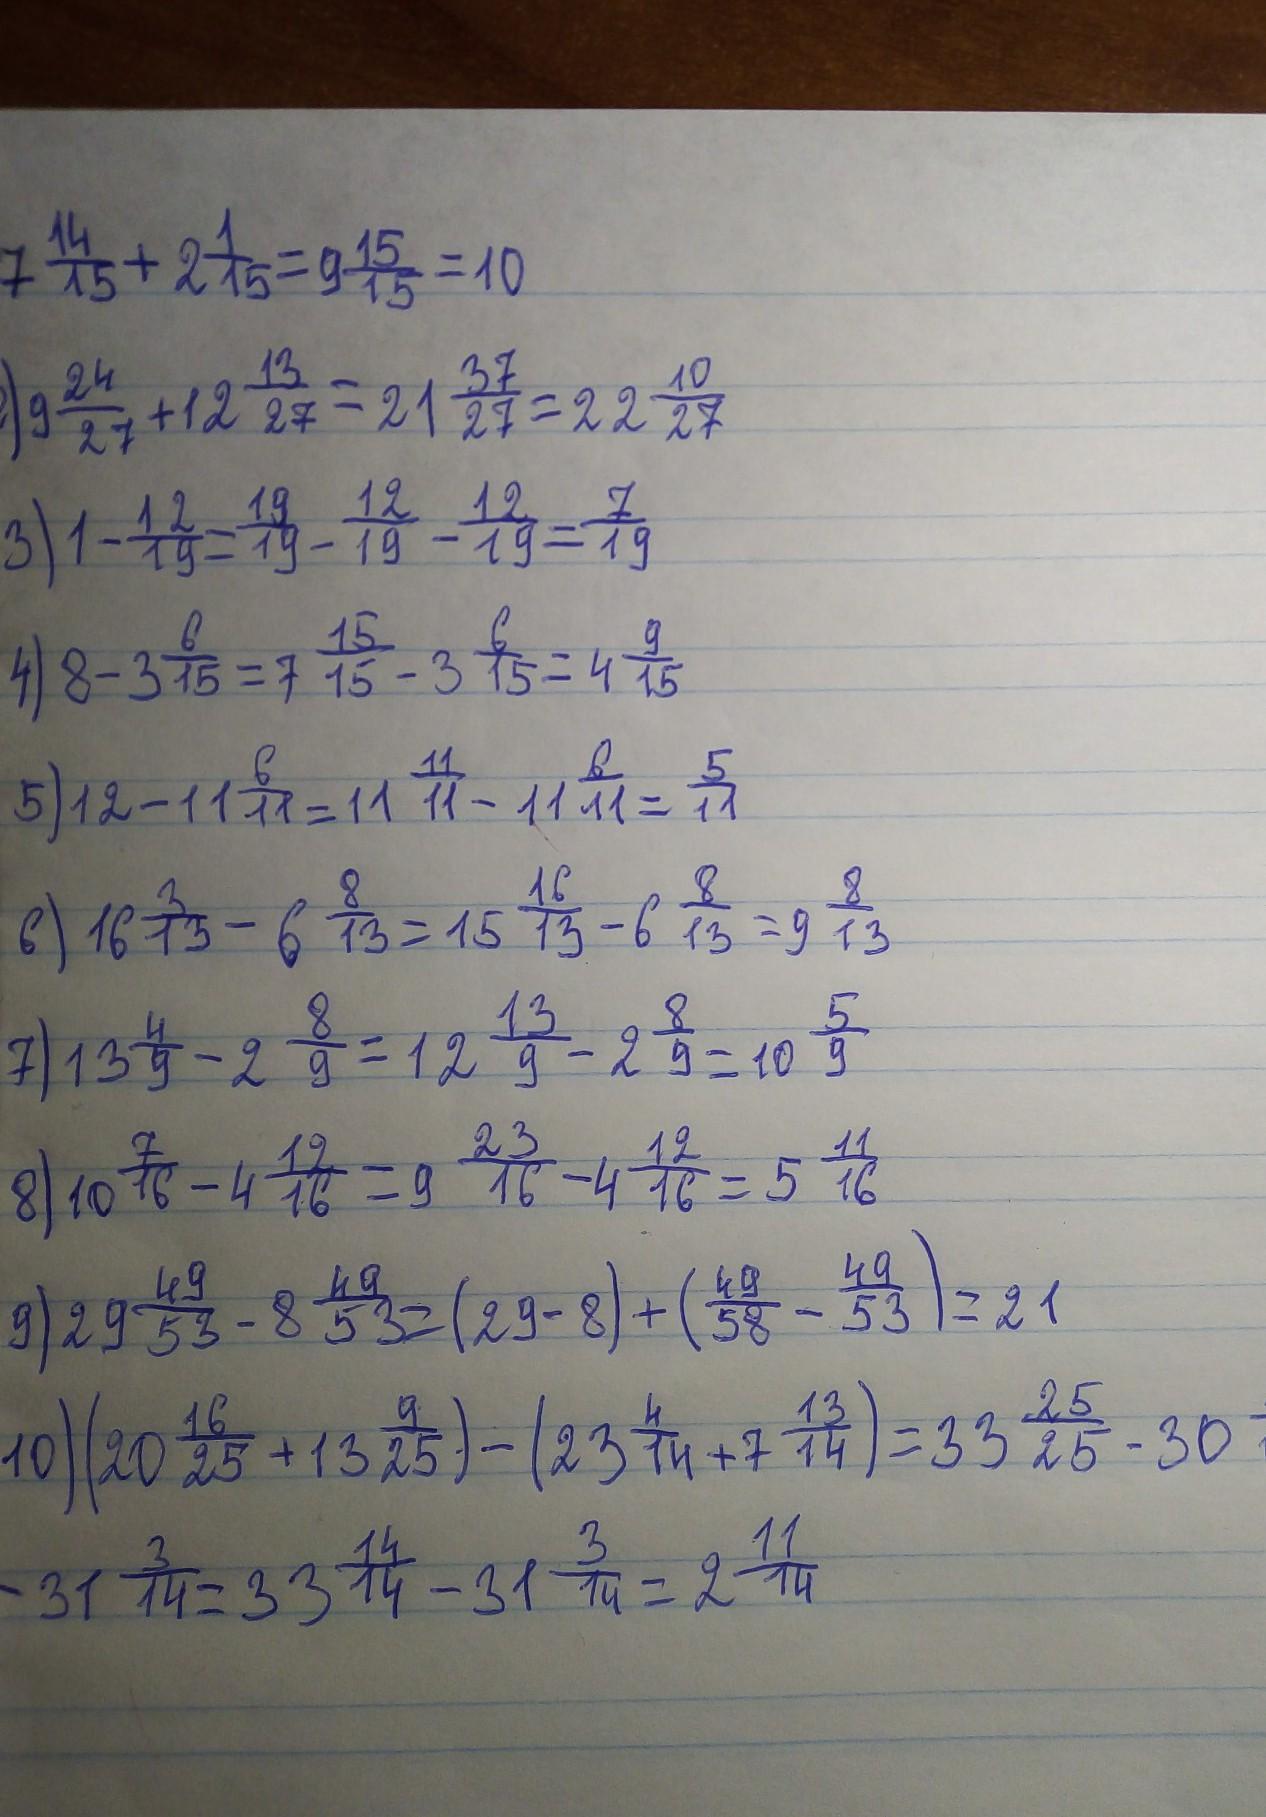 7 14/15 + 2 1/15 = 9 15/15 = 10
) 9 24/27 + 12 13/27 = 21 37/27 = 22 10/27
3) 1 - 12/19 = 19/19 - 12/19 - 12/19 = 7/19
4) 8 - 3 6/15 = 7 15/15 - 3 6/15 = 4 9/15
5) 12 - 11 6/11 = 11 11/11 - 11 6/11 = 5/11
6) 16 3/13 - 6 8/13 = 15 16/13 - 6 8/13 = 9 8/13
7) 13 4/9 - 2 8/9 = 12 13/9 - 2 8/9 = 10 5/9
8) 10 7/16 - 4 12/16 = 9 23/16 - 4 12/16 = 5 11/16
9) 29 49/53 - 8 49/53 = (29 - 8) + (49/58 - 49/53) = 21
10) (20 16/25 + 13 9/25) - (23 4/14 + 7 13/14) = 33 25/25 - 30
- 31 3/14 = 33 14/14 - 31 3/14 = 2 11/14